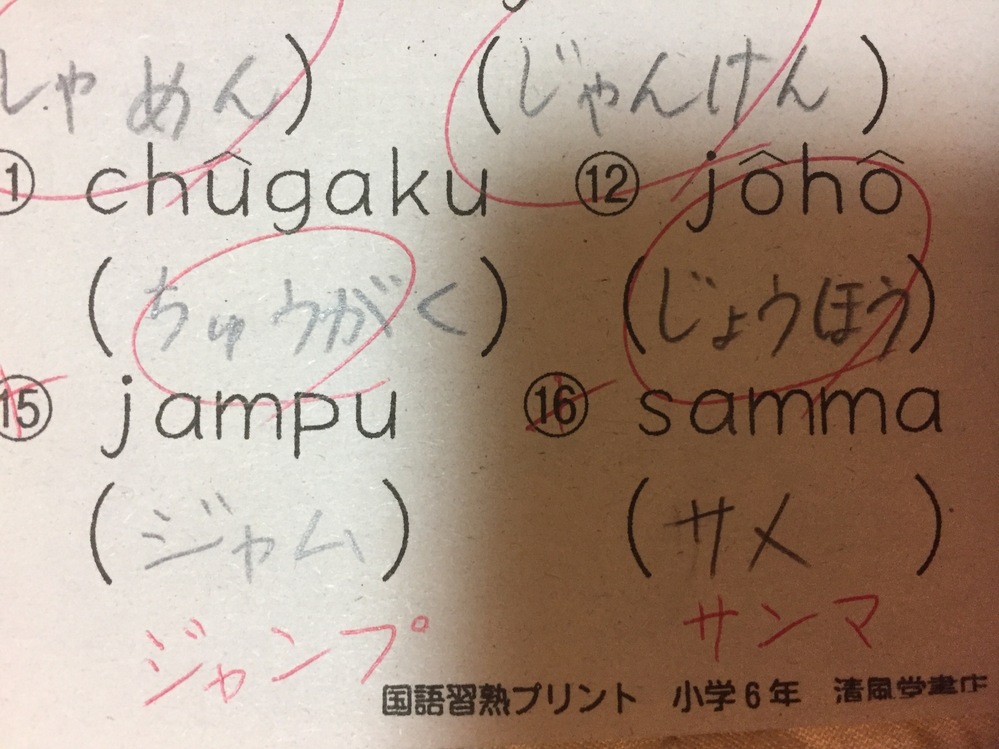 しゃめん) (じゃんけん)
⑪ chûgaku ⑫ jôhô
(ちゅうがく) (じょうほう)
⑮ jampu ⑯ samma
(ジャム) (サメ)
ジャンプ サンマ
国語習熟プリント 小学6年 清風堂書店